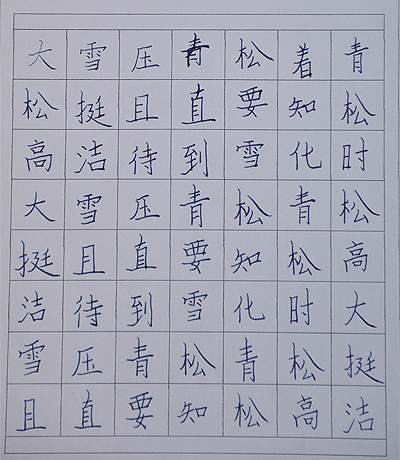 大雪压青松着青
松挺且直要知松
高洁待到雪化时
大雪压青松青松
挺且直要知松高
洁待到雪化时大
雪压青松青松挺
且直要知松高洁